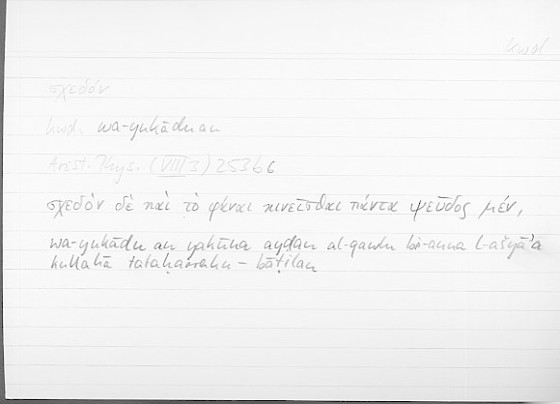 kwd
σχεδόν
kwd. wa-yukādu an
Arist. Phys. (VIII 3) 253b6
σχεδὸν δὲ καὶ τὸ φάναι κινεῖσθαι πάντα ψεῦδος μέν,
wa-yukādu an yakūna ayḍan al-qawlu bi-anna l-ašyāʾa
kullahā tataḥarraku – bāṭilan